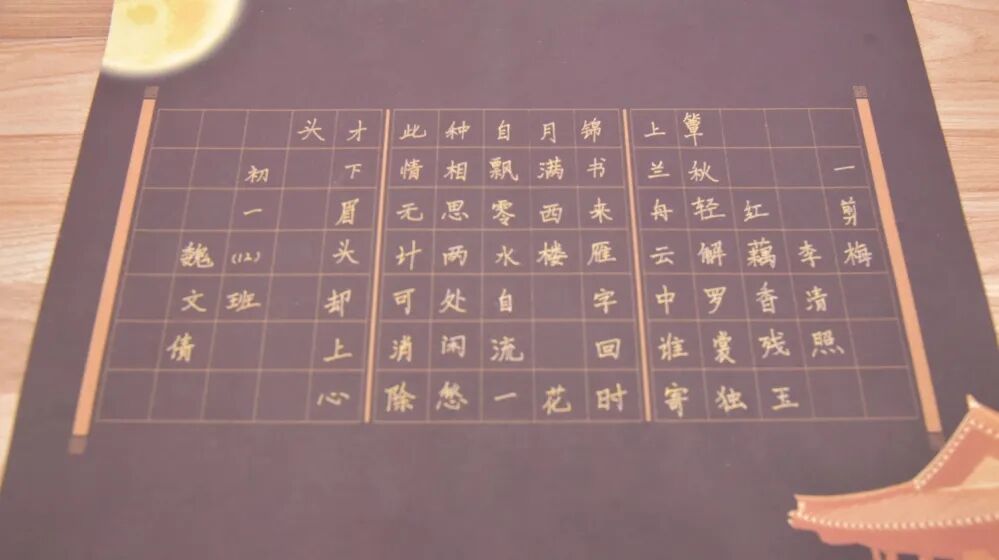 一剪梅
李清照
红藕香残玉
簟秋轻解罗裳独
上兰舟云中谁寄
锦书来雁字回时
月满西楼 花
自飘零水自流一
种相思两处闲愁
此情无计可消除
才下眉头却上心
头
初一(12)班
魏文倩